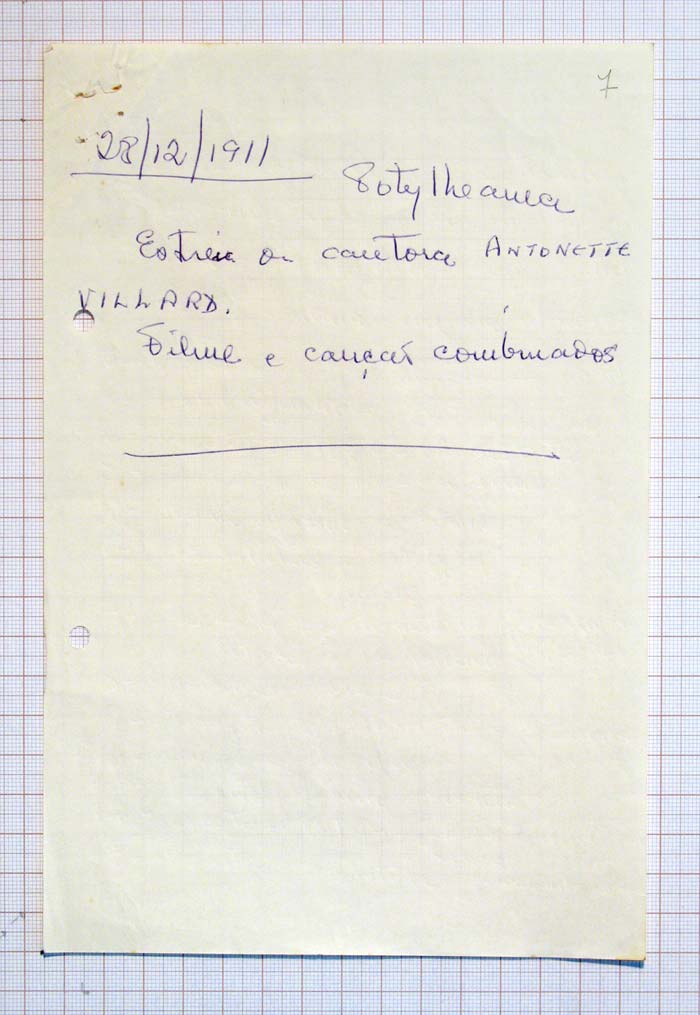 7
28/12/1911
Polytheama
Estreia da cantora ANTONETTE
VILLARD.
Filme e canções combinados